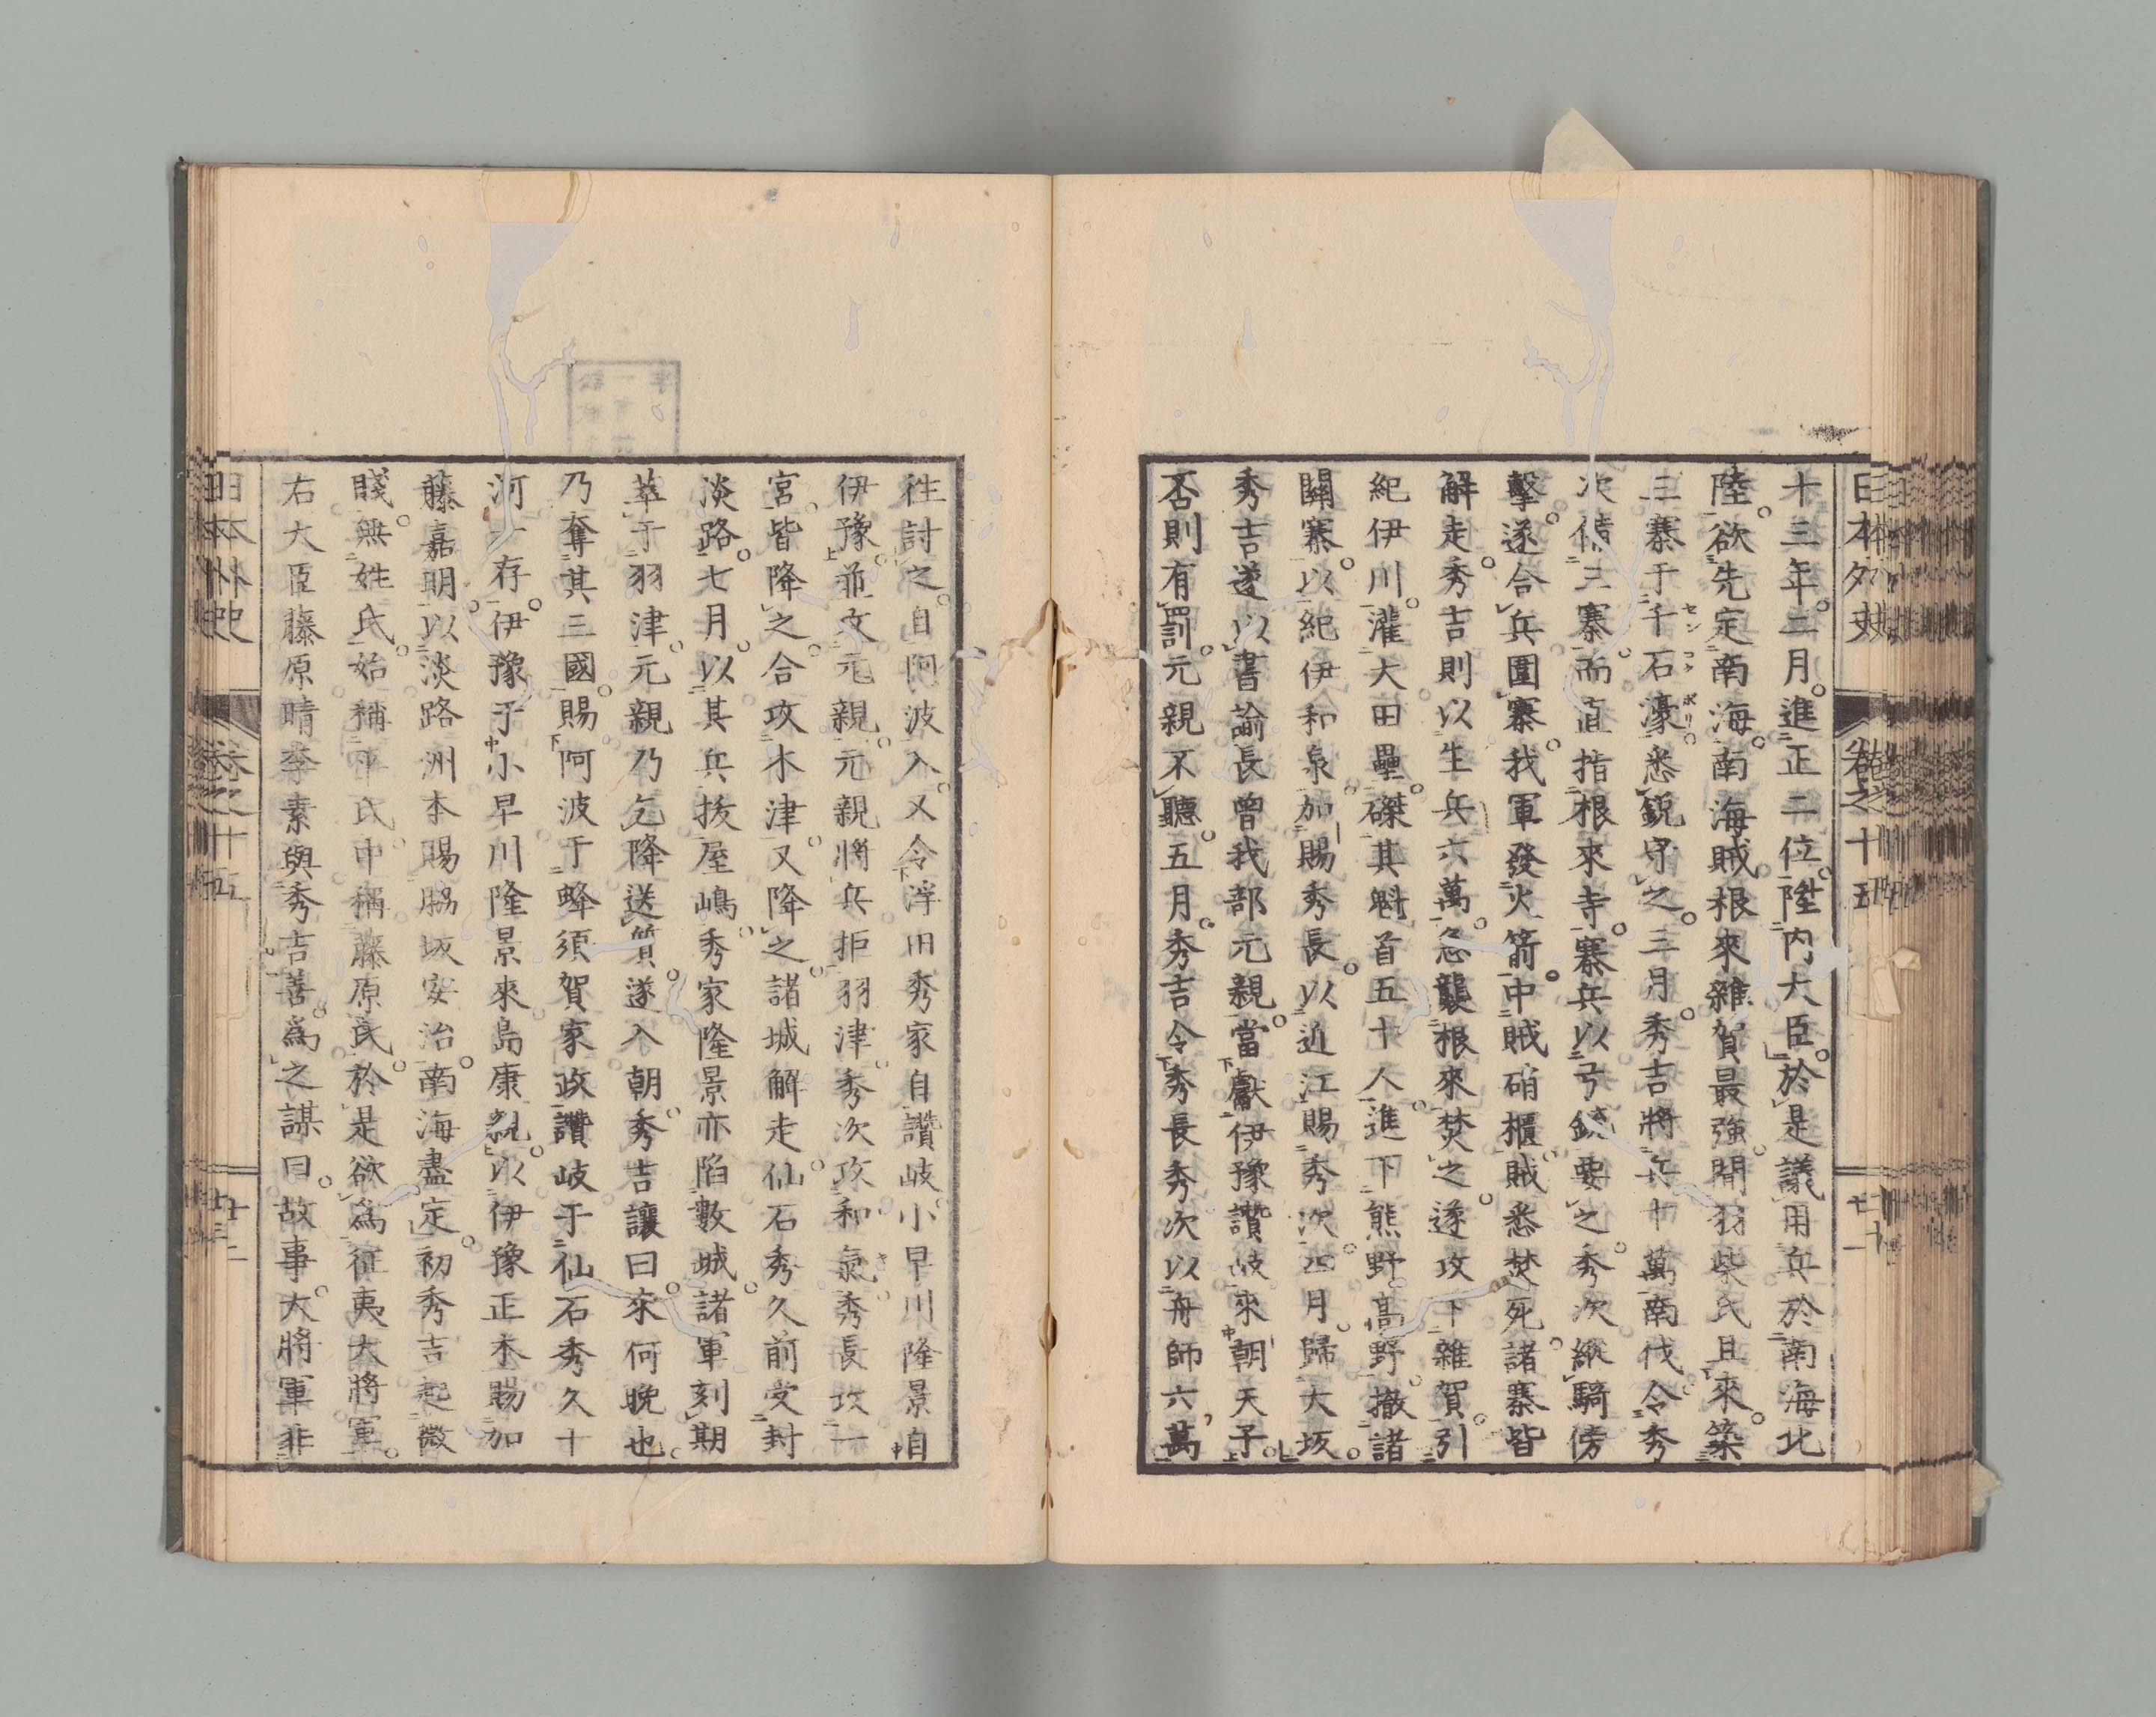 十三年。二月。進正二位。陞内大臣。於是議用兵於南海北
陸。欲先定南海。南海賊根來雜賀最強。聞羽柴氏且來。築
三寨于千石濠。悉鋭守之。三月。秀吉將兵十萬南伐。令秀
次備三寨。而直指根來寺。寨兵以弓銃要之。秀次縱騎傍
擊。遂合兵圍寨。我軍發火箭。中賊硝櫃。賊悉焚死。諸寨皆
解走。秀吉則以生兵六萬。急襲根來。焚之。遂攻下雜賀。引
紀伊川。灌大田壘。磔其魁首五十人。進下熊野高野。撤諸
關寨。以紀伊和泉。加賜秀長。以近江賜秀次。四月。歸大坂。
秀吉遂以書諭長曾我部元親。當獻伊豫讚岐。來朝天子。
否則有罰。元親不聽。五月。秀吉令秀長秀次以舟師六萬
往討之。自阿波入。又令浮田秀家自讚岐。小早川隆景自
伊豫。並攻元親。元親將兵拒羽津。秀次攻和氣。秀長攻一
宮。皆降之。合攻木津。又降之。諸城解走。仙石秀久前受封
淡路。七月。以其兵拔屋嶋。秀家隆景亦陷數城。諸軍刻期
萃于羽津。元親乃乞降送質。遂入朝。秀吉讓曰。來何晩也。
乃奪其三國。賜阿波于蜂須賀家政。讚岐于仙石秀久。十
河一存。伊豫于小早川隆景來島康親。以伊豫正木賜加
藤嘉明。以淡路洲本賜脇坂安治。南海盡定。初秀吉起微
賤。無姓氏。始稱平氏。中稱藤原氏。於是欲爲征夷大將軍。
右大臣藤原晴季素與秀吉善。爲之謀曰。故事。大將軍非
日本外史
卷之十五